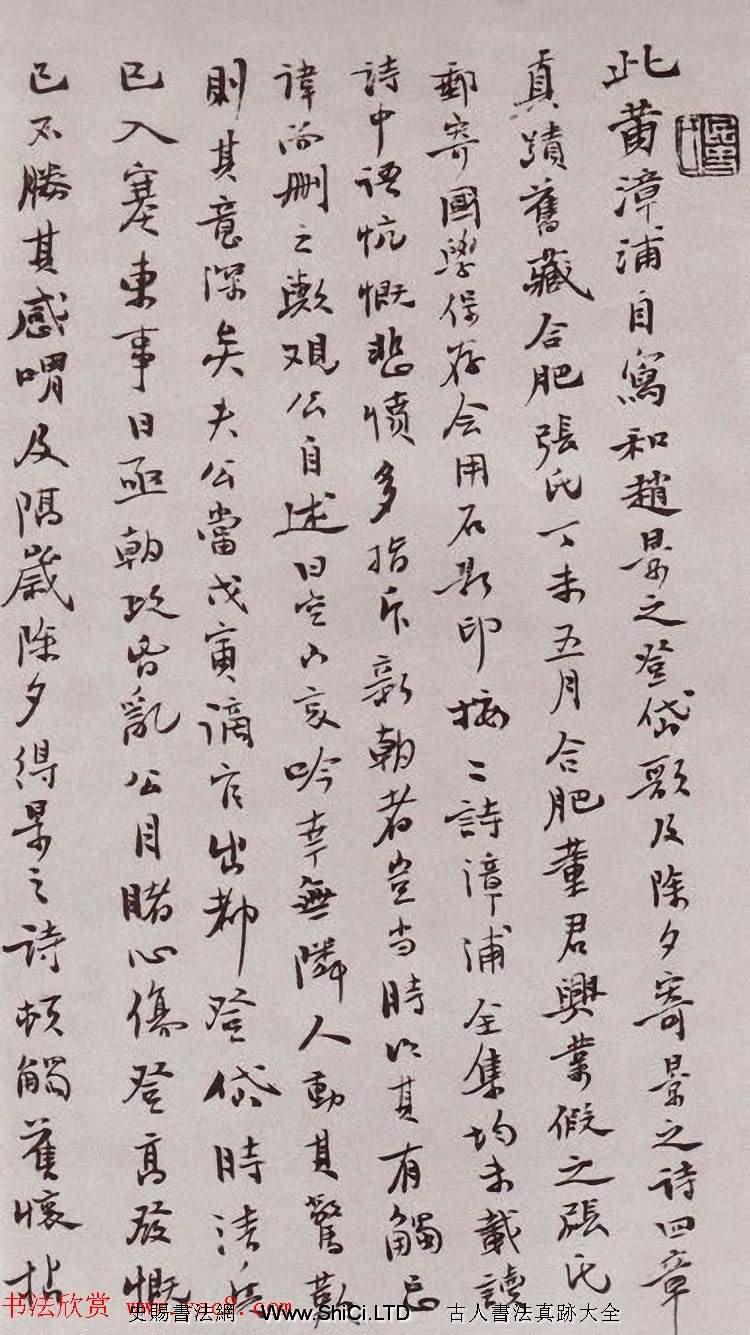 此黃漳浦自寫和趙景之登岱歌及除夕寄景之詩四章
真蹟舊藏合肥張氏丁未五月合肥董君興業假之張氏
郵寄國學保存会用石影印按二詩漳浦全集均未載讀
詩中語忼慨悲憤多指斥新朝者豈当時以其有觸忌
諱而刪之歟观公自述曰空山哀吟幸無隣人動其驚歎
則其意深矣夫公當戊寅謫官出都登岱時清兵
已入塞東事日亟朝政昏亂公目睹心傷登高發慨
已不勝其感喟及隔歲除夕得景之詩頓觸舊懷拈
书法欣赏
史賜書法網 www.ShiCi.LTD 古人書法真跡大全